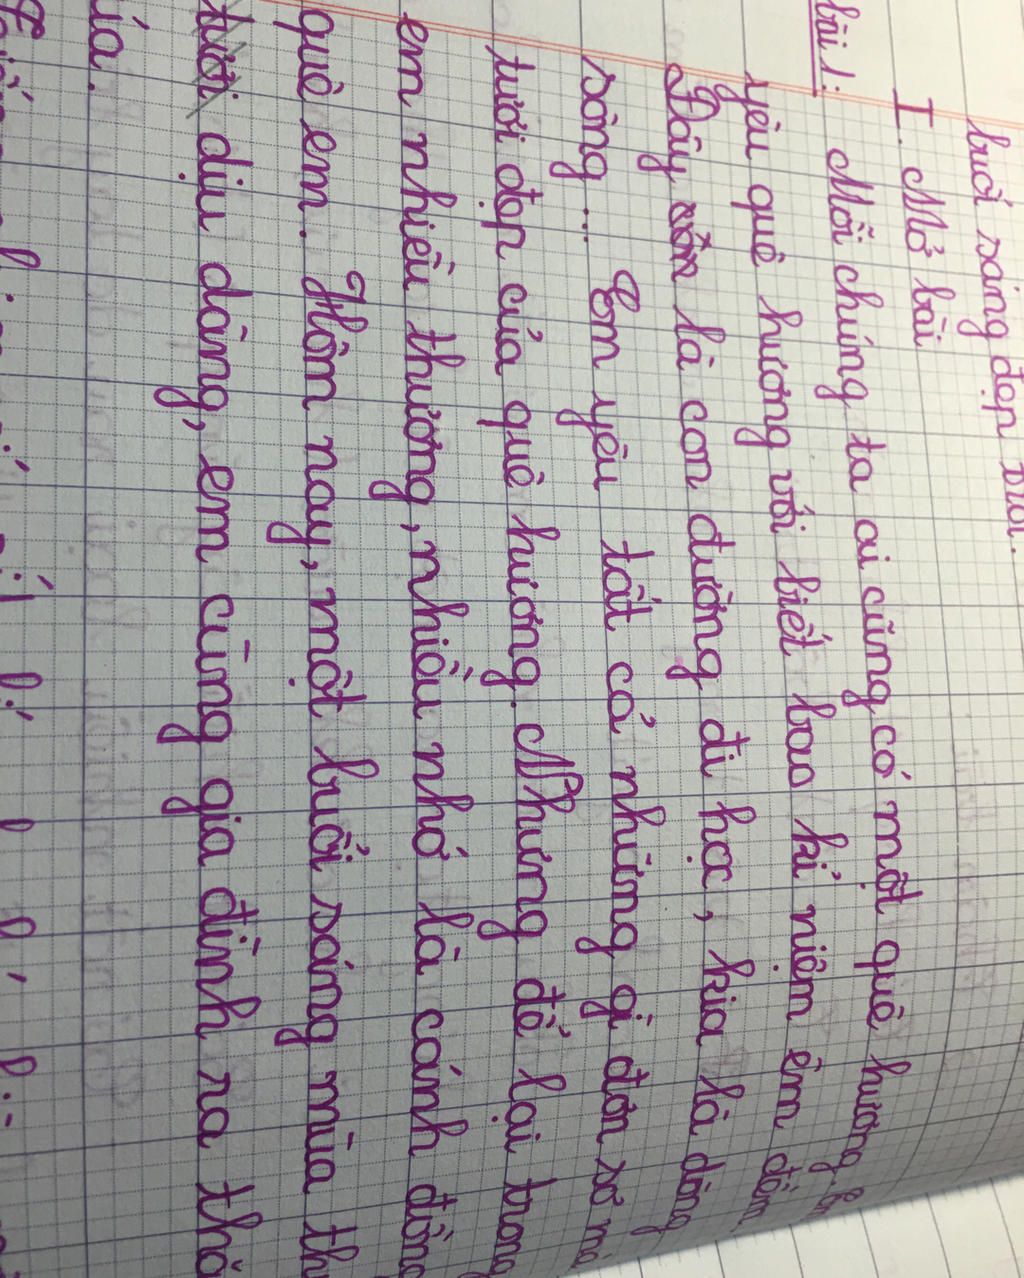 buổi sáng đẹp trời.
I. Mở bài
bài 1: Mỗi chúng ta ai cũng có một quê hương. Em
yêu quê hương với biết bao kỉ niệm êm đềm.
Đây là con đường đi học, kia là dòng
sông ... Em yêu tất cả những gì đơn sơ mà
tươi đẹp của quê hương. Nhưng để lại trong
em nhiều thương, nhiều nhớ là cánh đồng
quê em. Hôm nay, một buổi sáng mùa th
tươi dịu dàng, em cùng gia đình ra thă
úa.